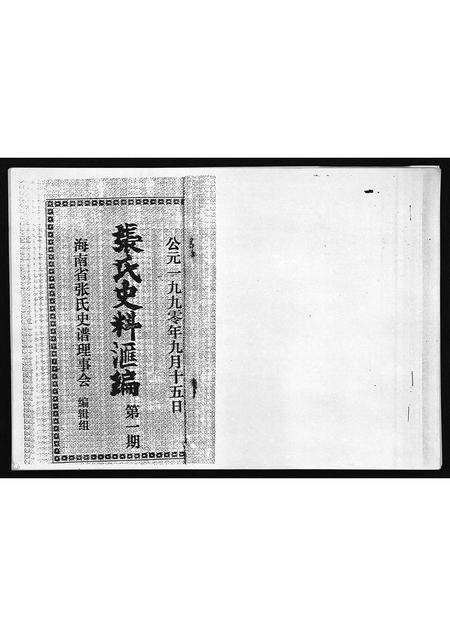 公元一九九零年九月十五日
張氏史料滙编 第一期
海南省张氏史谱理事会 编辑组